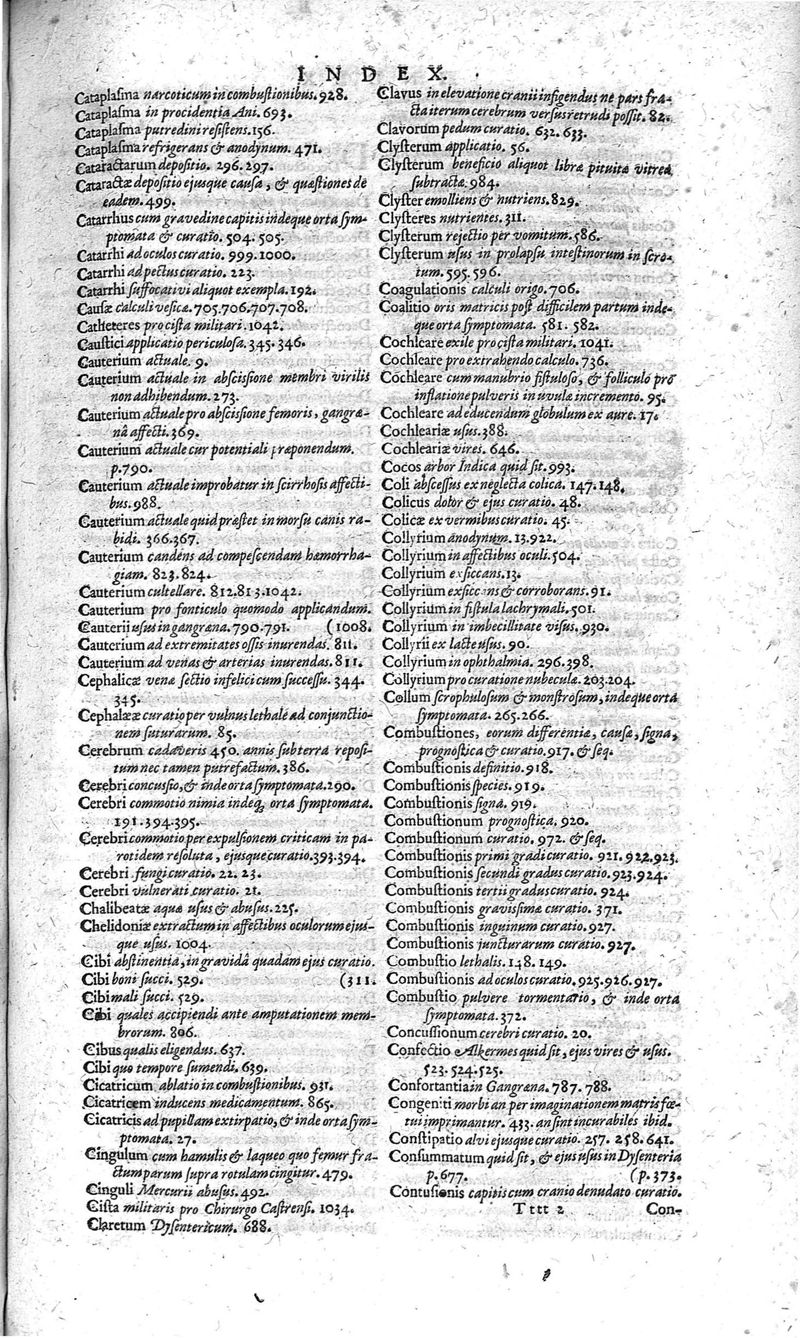 INDEX.
Cataplasma narcoticum in combustionibus. 928.
Cataplasma in procidentia Ani. 693.
Cataplasma putredini resistens. 156.
Cataplasma refrigerans & anodynum. 471.
Cataractarum depositio. 296. 297.
Cataractæ depositio ejusque causa, & quæstiones de
eadem. 499.
Catarrhus cum gravedine capitis indeque orta sym-
ptomata & curatio. 504. 505.
Catarrhi ad oculos curatio. 999. 1000.
Catarrhi ad pectus curatio. 223.
Catarrhi suffocativi aliquot exempla. 192.
Causæ calculi vesicæ. 705. 706. 707. 708.
Catheteres pro cista militari. 1042.
Caustici applicatio periculosa. 345. 346.
Cauterium actuale. 9.
Cauterium actuale in abscissione membri virilis
non adhibendum. 273.
Cauterium actuale pro abscissione femoris, gangræ-
nâ affecti. 369.
Cauterium actuale cur potentiali præponendum.
p. 790.
Cauterium actuale improbatur in scirrhosis affecti-
bus. 988.
Cauterium actuale quid præstet in morsu canis ra-
bidi. 366. 367.
Cauterium candens ad compescendam hæmorrha-
giam. 823. 824.
Cauterium cultellare. 812. 813. 1042.
Cauterium pro fonticulo quomodo applicandum.
Cauterii usus in gangræna. 790. 791. (1008.
Cauterium ad extremitates ossis inurendas. 811.
Cauterium ad venas & arterias inurendas. 811.
Cephalicæ venæ sectio infelici cum successu. 344.
345.
Cephalææ curatio per vulnus lethale ad conjunctio-
nem suturarum. 85.
Cerebrum cadaveris 450. annis subterra reposi-
tum nec tamen putrefactum. 386.
Cerebri concussio, & inde orta symptomata. 290.
Cerebri commotio nimia indeq; orta symptomata.
191. 394. 395.
Cerebri commotio per expulsionem criticam in pa-
rotidem resoluta, ejusque curatio. 393. 394.
Cerebri fungi curatio. 22. 23.
Cerebri vulnerati curatio. 21.
Chalibeatæ aquæ usus & abusus. 225.
Chelidoniæ extractum in affectibus oculorum ejus-
que usus. 1004.
Cibi abstinentia, in gravidâ quadam ejus curatio.
Cibi boni succi. 529. (311.
Cibi mali succi. 529.
Cibi quales accipiendi ante amputationem mem-
brorum. 806.
Cibus qualis eligendus. 637.
Cibi quo tempore sumendi. 639.
Cicatricum ablatio in combustionibus. 931.
Cicatricem inducens medicamentum. 865.
Cicatricis ad pupillam extirpatio, & inde orta sym-
ptomata. 27.
Cingulum cum hamulis & laqueo quo femur fra-
ctum parum supra rotulam cingitur. 479.
Cinguli Mercurii abusus. 492.
Cista militaris pro Chirurgo Castrensi. 1034.
Claretum Dysentericum. 688.
Clavus in elevatione cranii infigendus ne pars fra-
cta iterum cerebrum versus retrudi possit. 82.
Clavorum pedum curatio. 632. 633.
Clysterum applicatio. 56.
Clysterum beneficio aliquot libræ pituitæ vitreæ
subtractæ. 984.
Clyster emolliens & nutriens. 829.
Clysteres nutrientes. 311.
Clysterum rejectio per vomitum. 586.
Clysterum usus in prolapsu intestinorum in scro-
tum. 595. 596.
Coagulationis calculi origo. 706.
Coalitio oris matricis post difficilem partum inde-
que orta symptomata. 581. 582.
Cochleare exile pro cista militari. 1041.
Cochleare pro extrahendo calculo. 736.
Cochleare cum manubrio fistuloso, & folliculo pro
inflatione pulveris in uvulæ incremento. 95.
Cochleare ad educendum globulum ex aure. 17.
Cochleariæ usus. 388.
Cochleariæ vires. 646.
Cocos arbor Indica quid sit. 993.
Coli abscessus ex neglecta colica. 147. 148.
Colicus dolor & ejus curatio. 48.
Colicæ ex vermibus curatio. 45.
Collyrium anodynum. 13. 922.
Collyrium in affectibus oculi. 504.
Collyrium exsiccans. 13.
Collyrium exsiccans & corroborans. 91.
Collyrium in fistula lachrymali. 501.
Collyrium in imbecillitate visus. 930.
Collyrii ex lacte usus. 90.
Collyrium in ophthalmia. 296. 398.
Collyrium pro curatione nubeculæ. 203. 204.
Collum scrophulosum & monstrosum, indeque orta
symptomata. 265. 266.
Combustiones, eorum differentiæ, causa, signa,
prognostica & curatio. 917. & seq.
Combustionis definitio. 918.
Combustionis species. 919.
Combustionis signa. 919.
Combustionum prognostica. 920.
Combustionum curatio. 972. & seq.
Combustionis primi gradi curatio. 921. 922. 923.
Combustionis secundi gradus curatio. 923. 924.
Combustionis tertii gradus curatio. 924.
Combustionis gravissimæ curatio. 371.
Combustionis inguinum curatio. 927.
Combustionis juncturarum curatio. 927.
Combustio lethalis. 148. 149.
Combustionis ad oculos curatio. 925. 926. 927.
Combustio pulvere tormentario, & inde orta
symptomata. 372.
Concussionum cerebri curatio. 20.
Confectio Alkermes quid sit, ejus vires & usus.
523. 524. 525.
Confortantia in Gangræna. 787. 788.
Congeniti morbi an per imaginationem matris fœ-
tui imprimantur. 433. an sint incurabiles ibid.
Constipatio alvi ejusque curatio. 257. 258. 641.
Consummatum quid sit, & ejus usus in Dysenteria
p. 677. (p. 373.
Contusionis capitis cum cranio denudato curatio.
Tttt 2 Con-